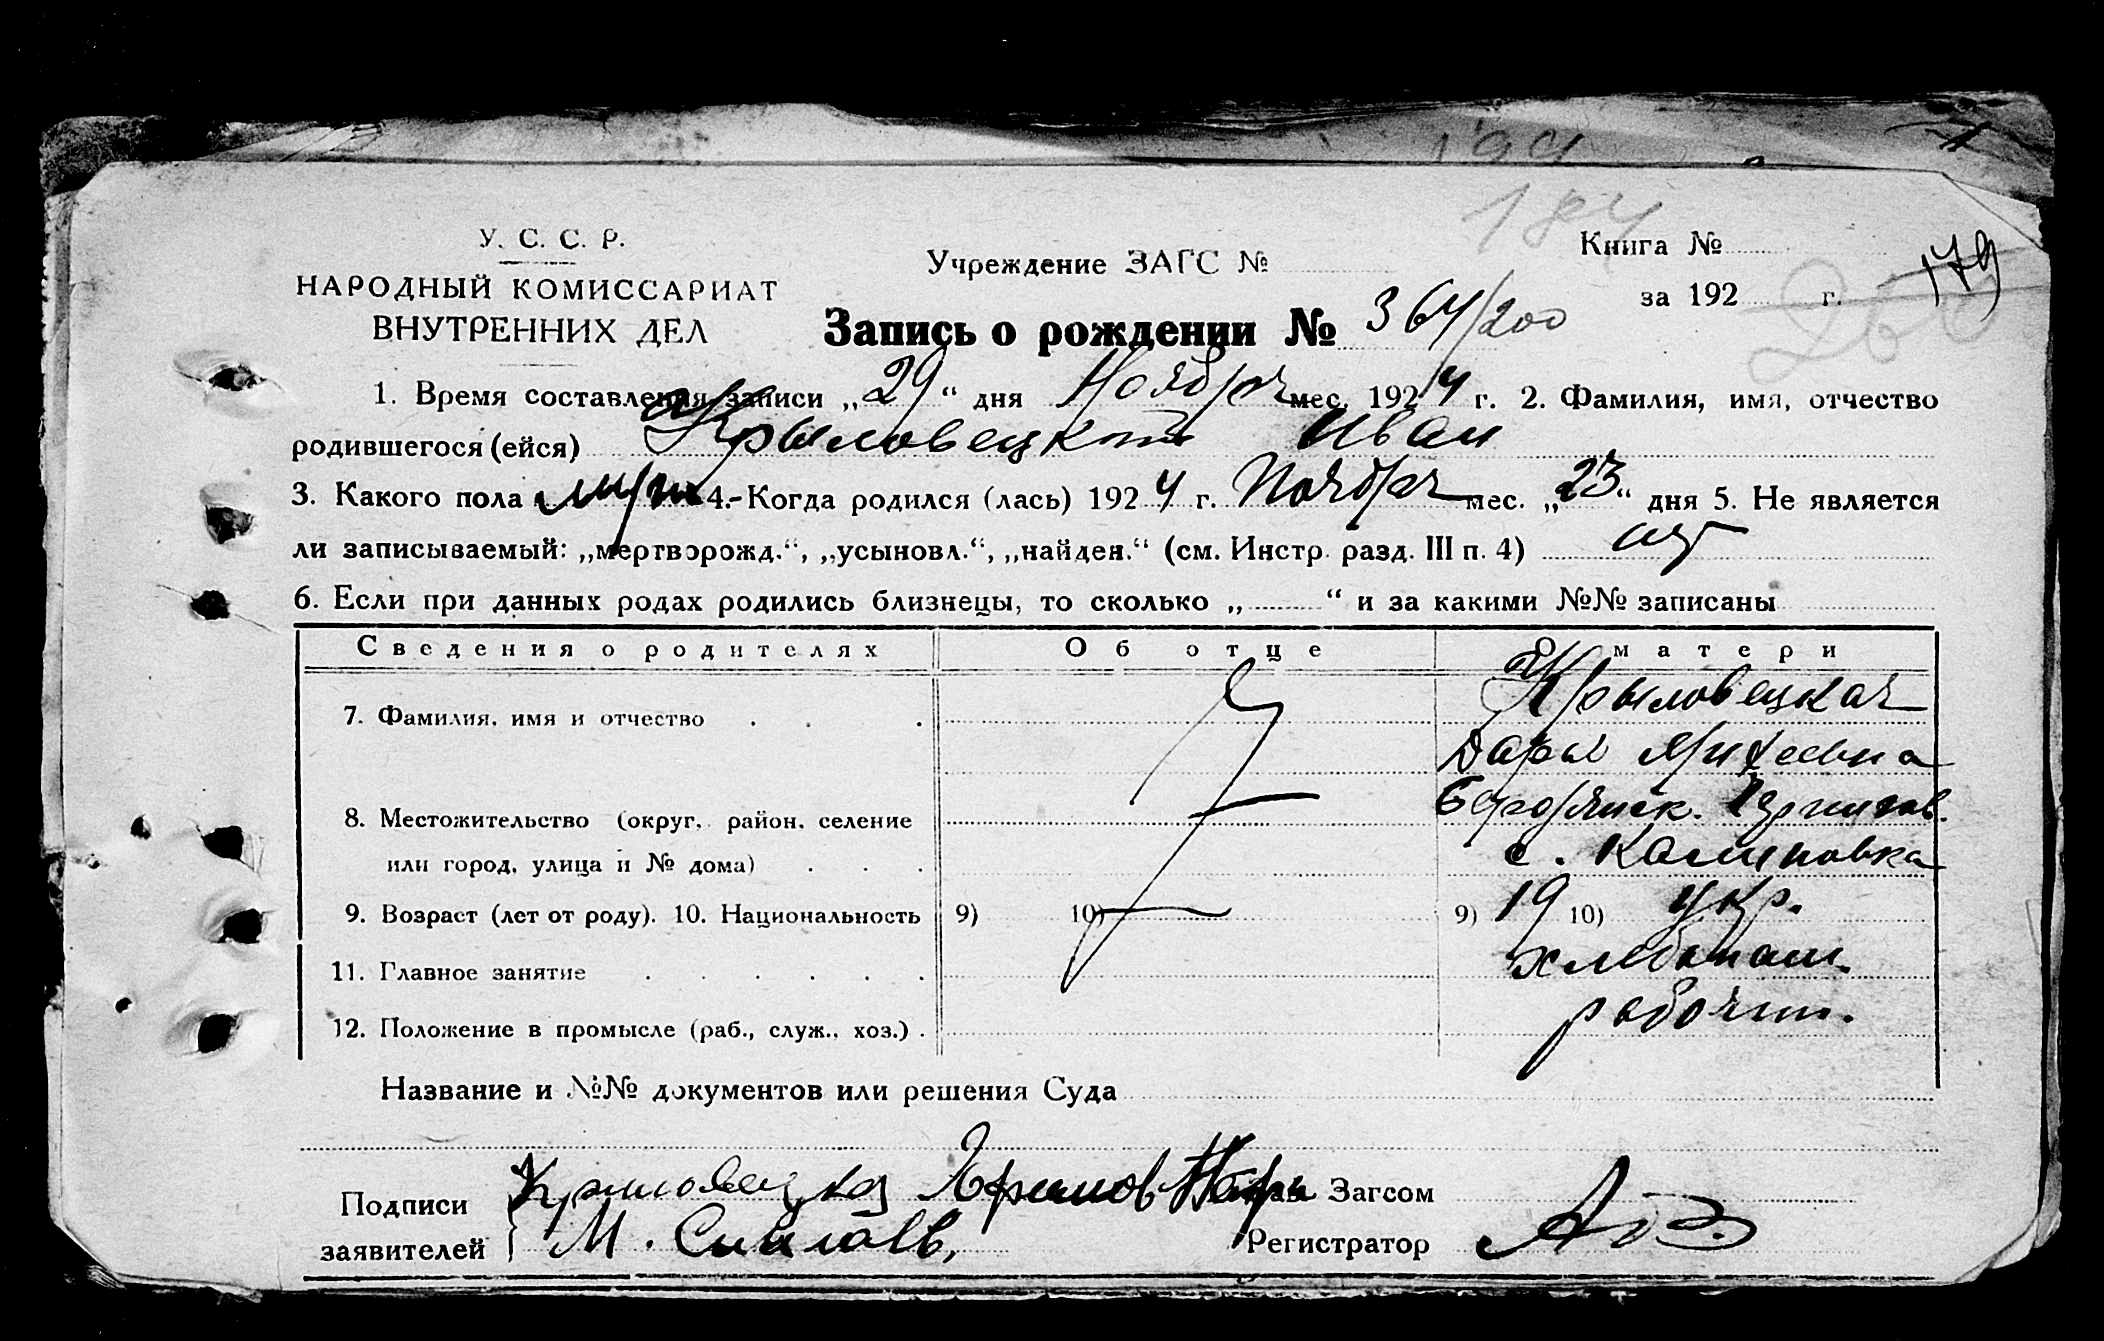 184
У. С. С. Р.
НАРОДНЫЙ КОМИССАРИАТ
ВНУТРЕННИХ ДЕЛ
Учреждение ЗАГС №
Книга №
за 192 г.
179
260
Запись о рождении № 364/200
1. Время составления записи „29“ дня Ноября мес. 1924 г. 2. Фамилия, имя, отчество
родившегося (ейся) Крыловецкий Иван
3. Какого пола муж 4. Когда родился (лась) 1924 г. Ноября мес. „23“ дня 5. Не является
ли записываемый: „мертворожд.“, „усыновл.“, „найден.“ (см. Инстр. разд. III п. 4)
6. Если при данных родах родились близнецы, то сколько „ “ и за какими №№ записаны
Сведения о родителях Об отце О матери
7. Фамилия, имя и отчество Крыловецкая
Дарья Михеевна
8. Местожительство (округ, район, селение
или город, улица и № дома) с. Калиновка
9. Возраст (лет от роду). 10. Национальность 9) 10) 9) 19 10) укр.
11. Главное занятие хлебопаш.
12. Положение в промысле (раб., служ., хоз.)
Название и №№ документов или решения Суда
Подписи Загсом
заявителей М. Регистратор